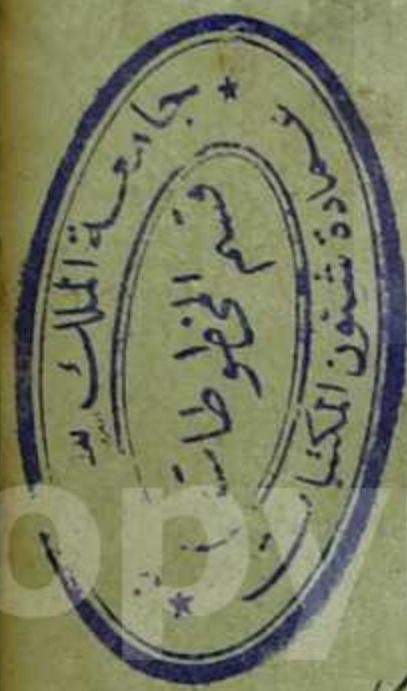 جامعة الملك سعود
قسم المخطوطات
عمادة شئون المكتبات
opy